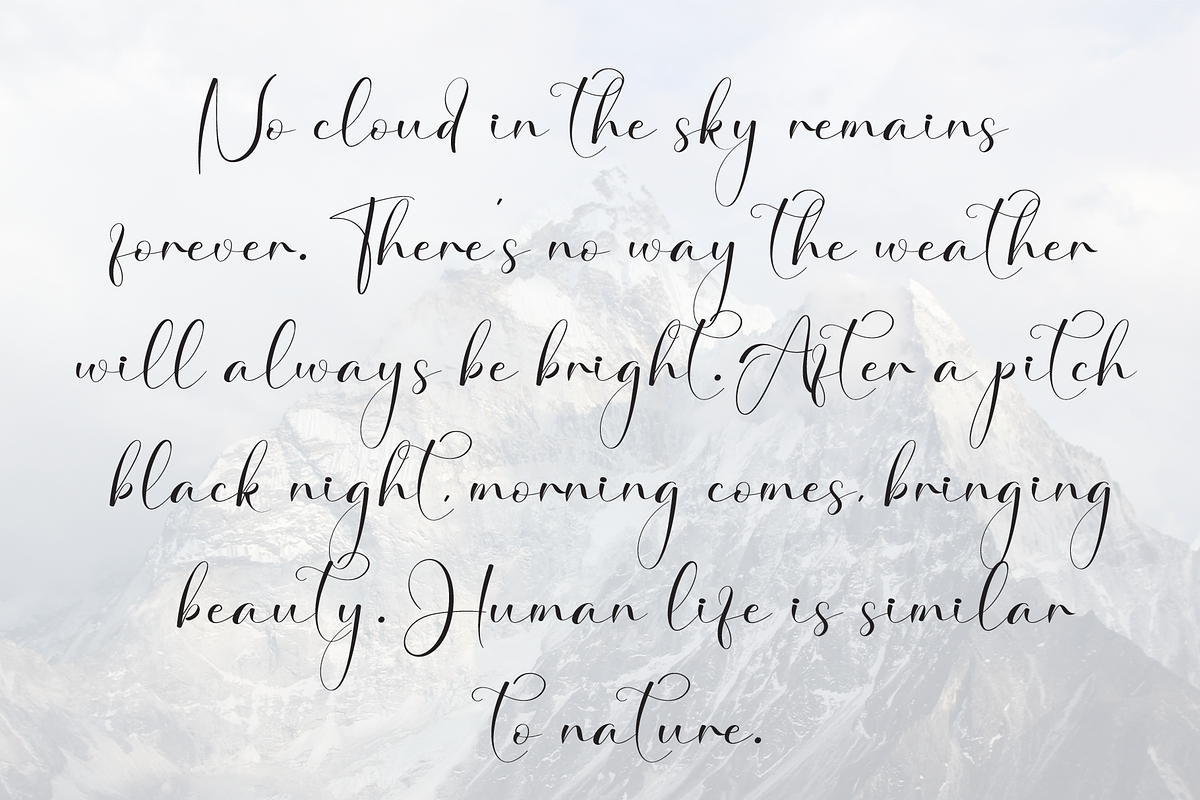 No cloud in the sky remains
forever. There's no way the weather
will always be bright. After a pitch
black night, morning comes, bringing
beauty. Human life is similar
to nature.